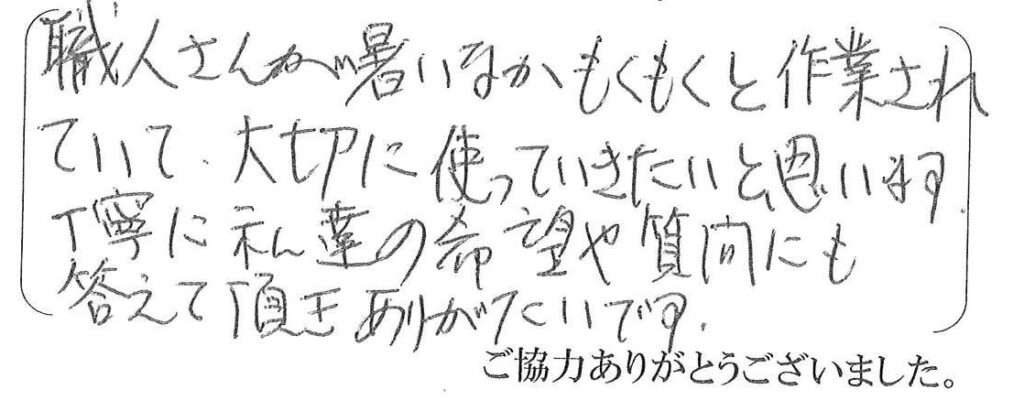 職人さんが暑いなかもくもくと作業され
ていて、大切に使っていきたいと思います。
丁寧に私達の希望や質問にも
答えて頂きありがたいです。
ご協力ありがとうございました。